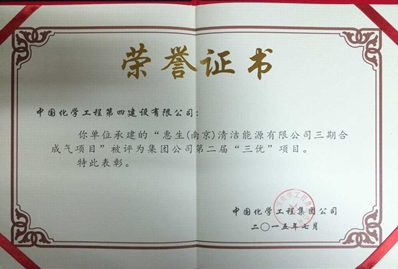 荣誉证书
中国化学工程第四建设有限公司:
你单位承建的“惠生(南京)清洁能源有限公司三期合
成气项目”被评为集团公司第二届“三优”项目。
特此表彰。
中国化学工程集团公司
二〇一五年七月